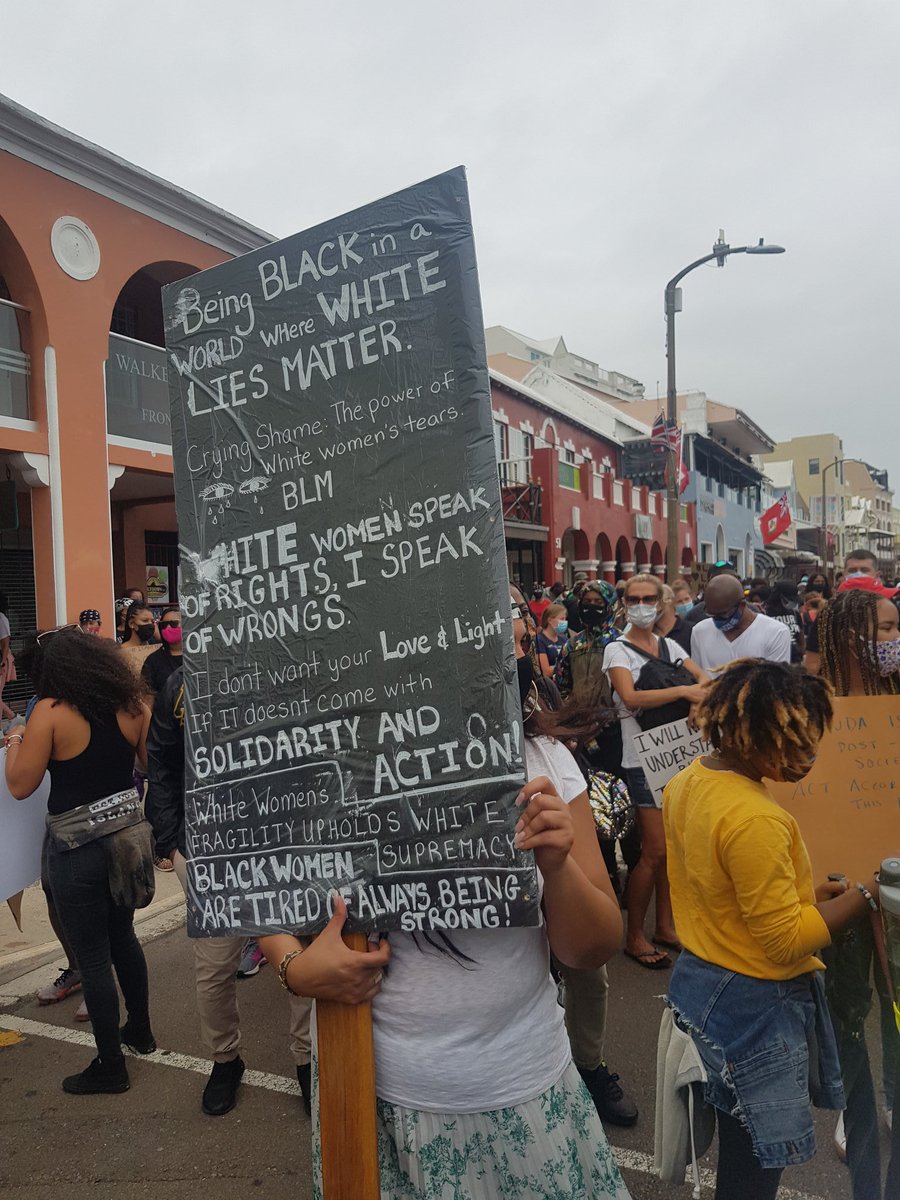 Being BLACK in a
WORLD WHere WHITE
LIES MATTER.
Crying Shame: The power of
White women's tears.
BLM
WHITE WOMEN SPEAK
OF RIGHTS, I SPEAK
OF WRONGS.
I dont want your Love & Light
IF IT doesnt come with
SOLIDARITY AND
ACTION!
White Women's
FRAGILITY UPHOLDS WHITE
SUPREMACY
BLACK WOMEN
ARE TIRED OF ALWAYS BEING
STRONG!
WALKE
FRON
I WILL
UNDERSTA
UDA IS
POST -
SOCIE
ACT ACCOR
THIS
ISLAND